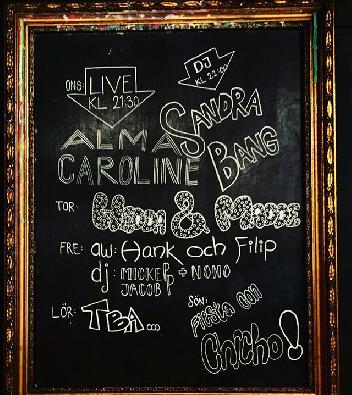 ONS: LIVE
KL 21:30
DJ
KL 22:00
ALMA
CAROLINE
SANDRA
BANG
TOR: & 
FRE: aw: Hank och Filip
dj: MICKE P + NOMO
JACOB P
LÖR: TBA...
SÖN:
Chicho!